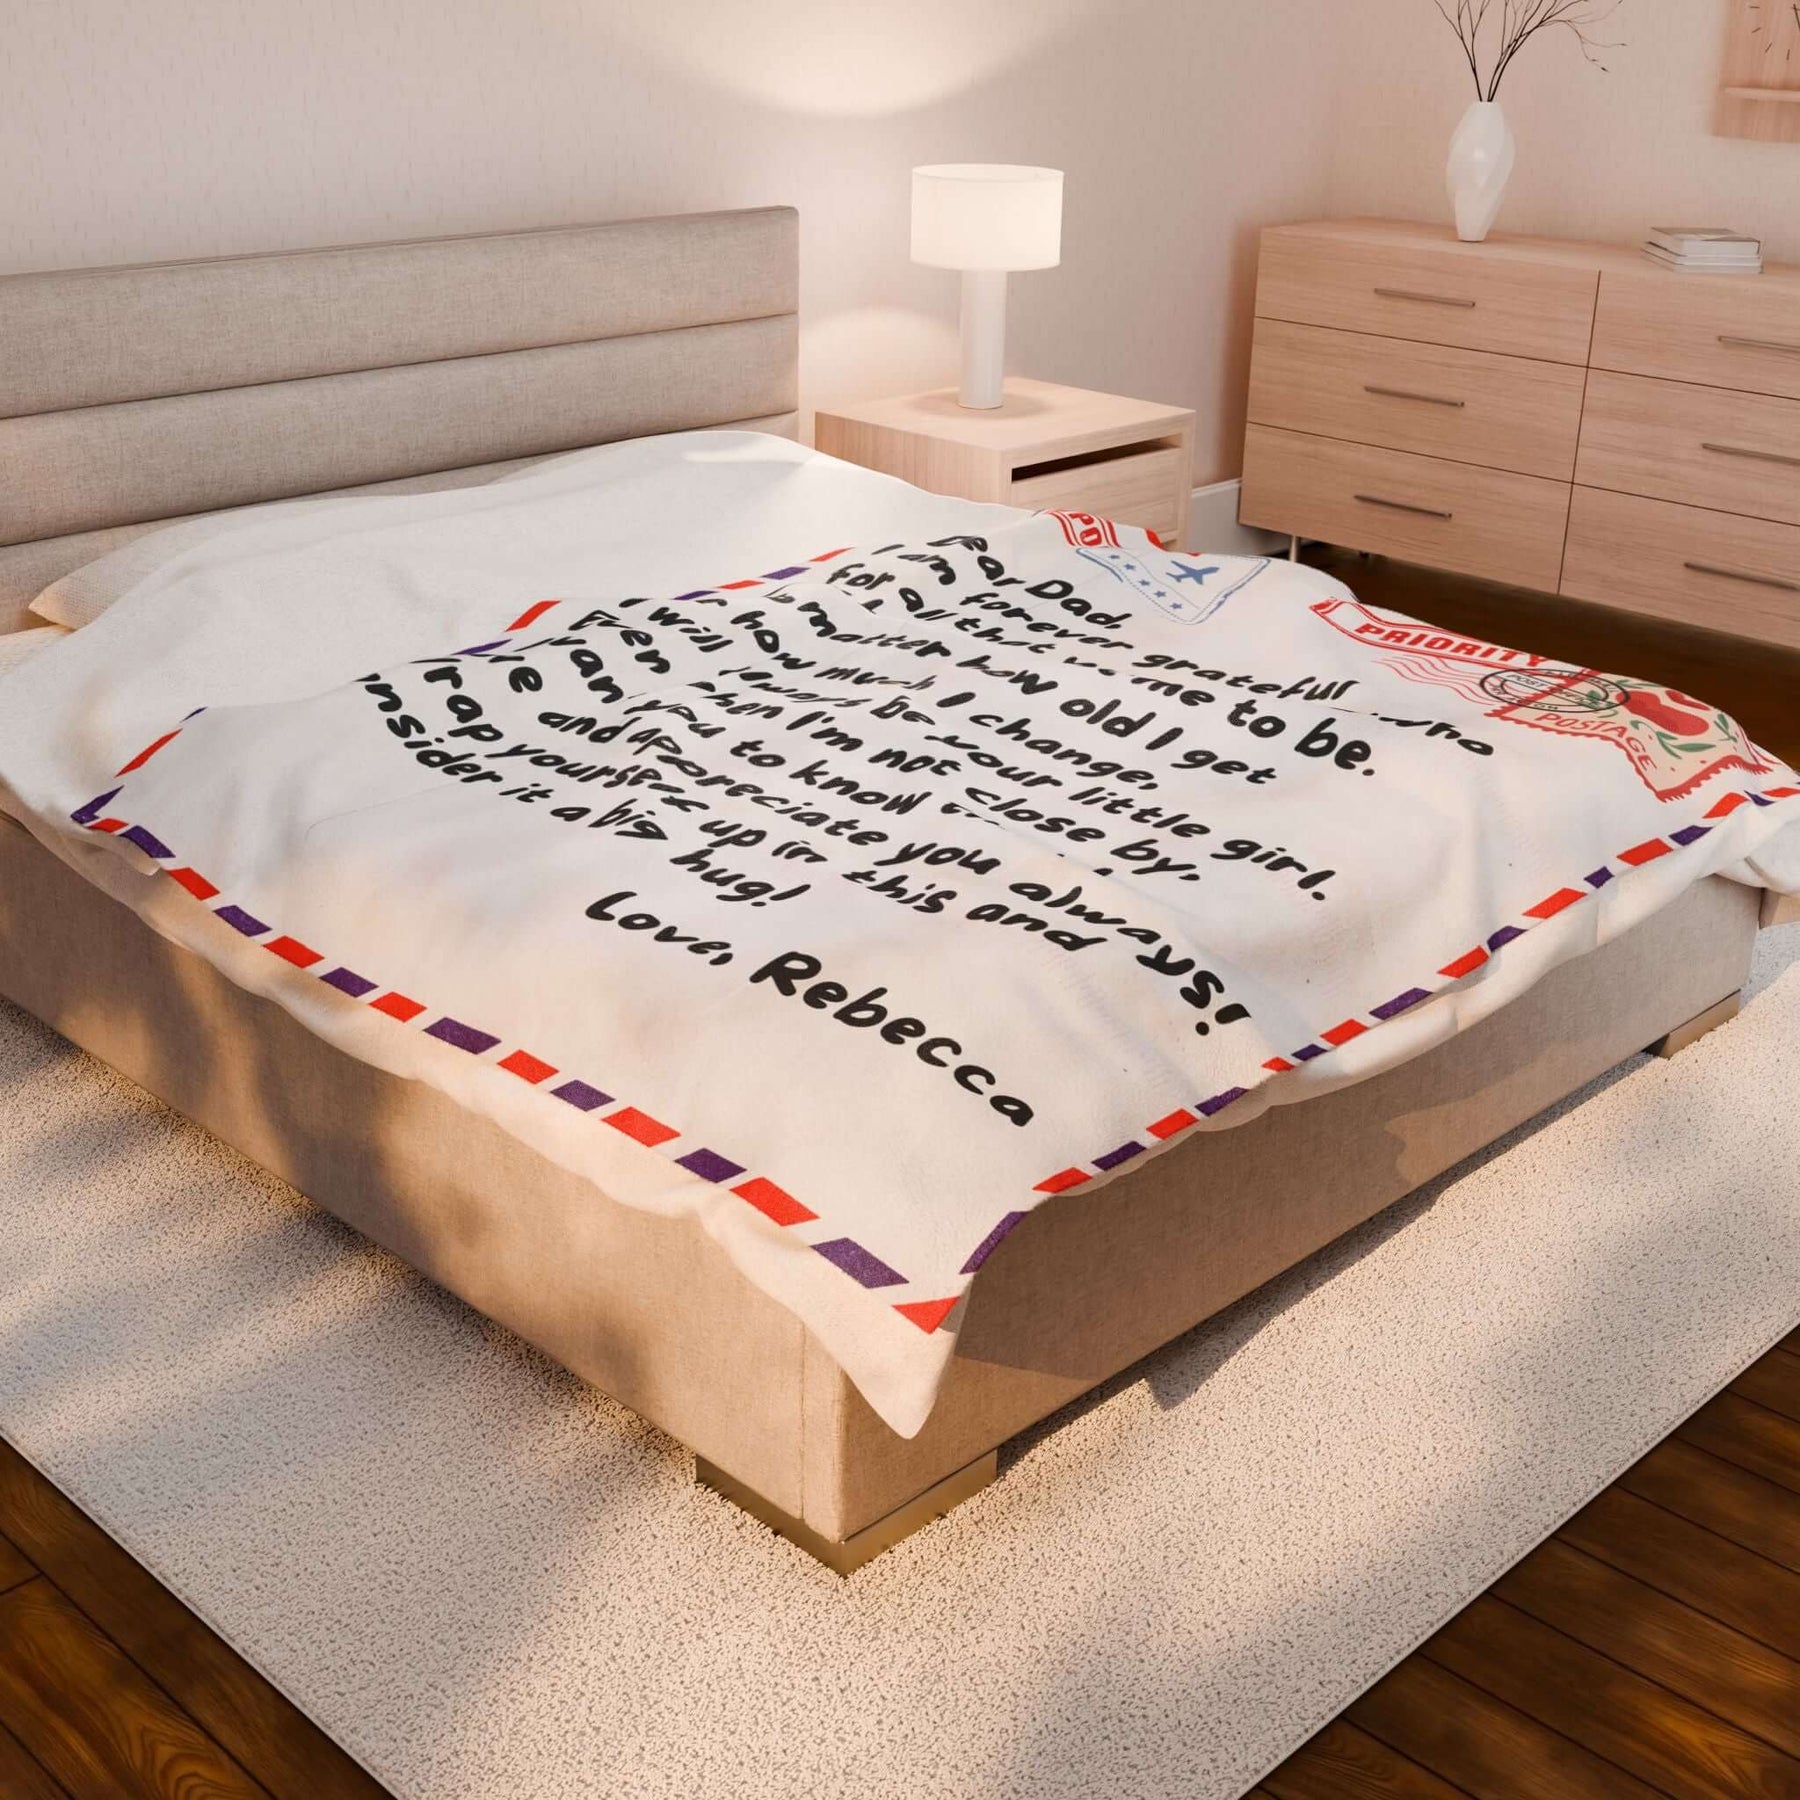 Dear Dad,
I am forever grateful
for all that me to be.
matter how old I get
how much I change,
I will always be your little girl.
Even when I'm not close by,
you to know
and appreciate you always!
Wrap yourself up in this and
consider it a big hug!
Love, Rebecca
PRIORITY
POSTAGE